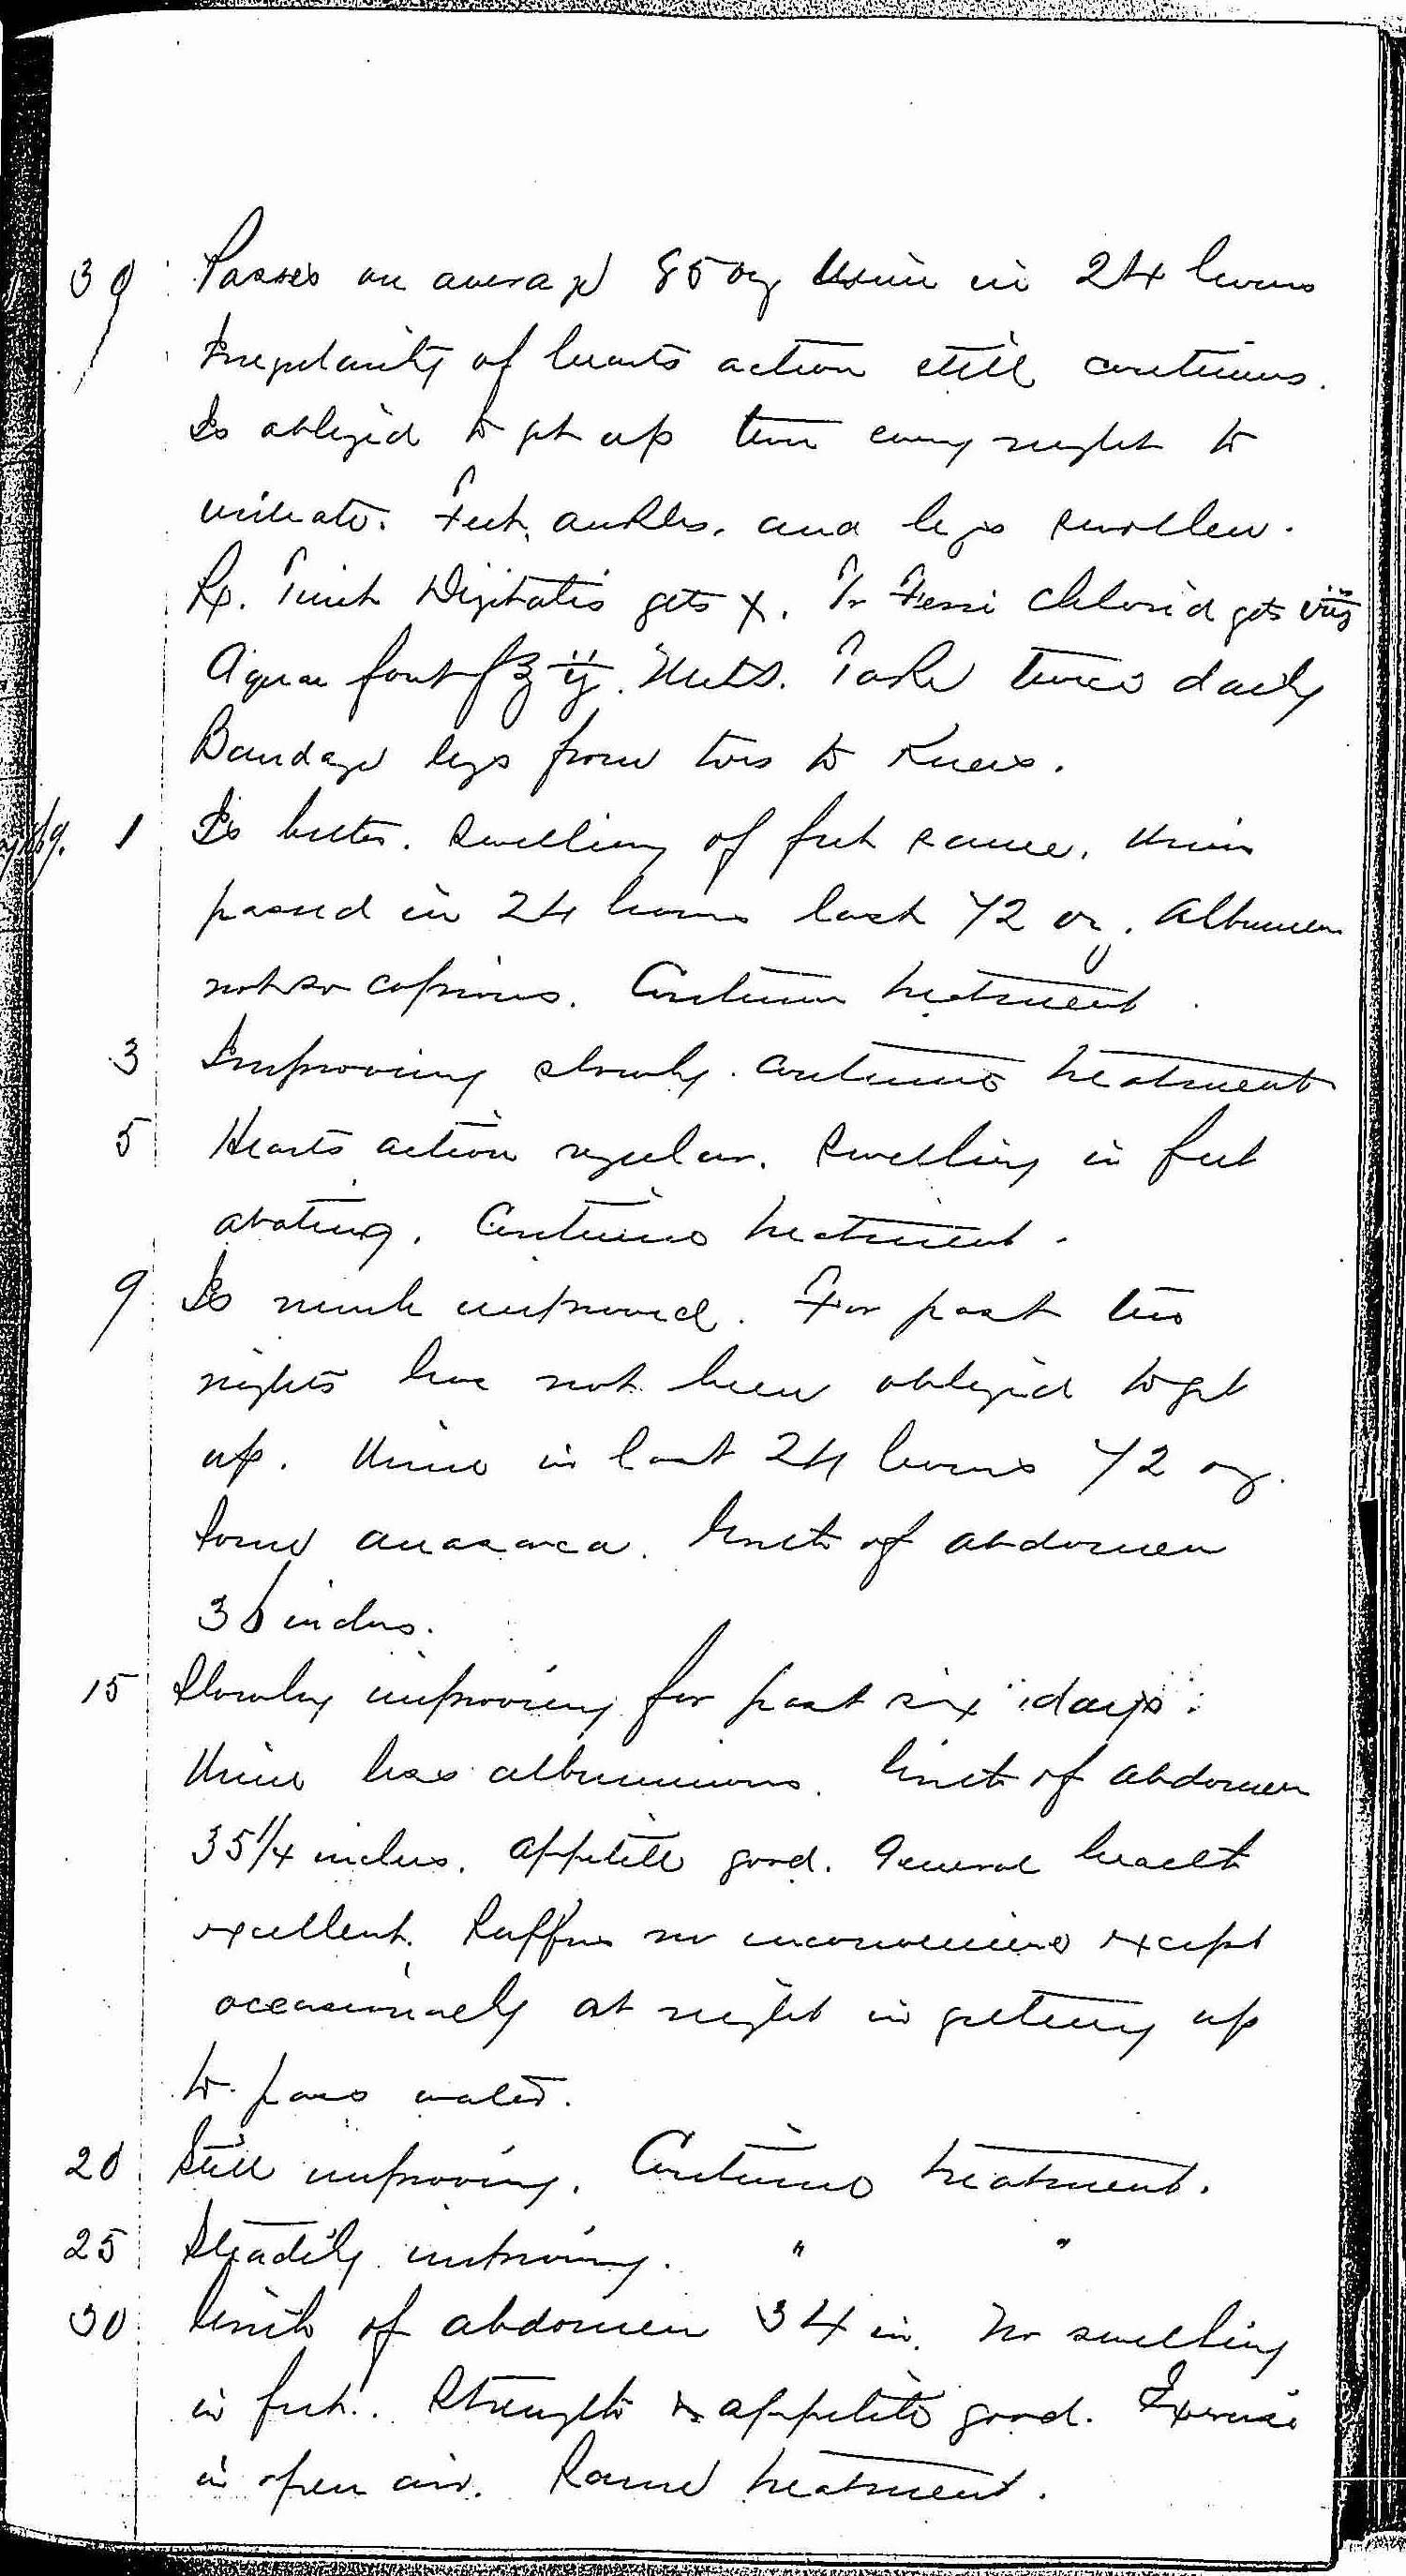 30 Passes on average 85 oz Urine in 24 hours
Irregularity of hearts action still continues.
Is obliged to get up every night to
urinate. Feet, ankles, and legs swollen.
Rx. Tinct Digitalis gtts X. Tr Ferri Chlorid gtts viij
Aquae font f℥ ij. Take twice daily
Bandage legs from toes to knees.
1 Is better. Swelling of feet same. Urine
passed in 24 hours last 72 oz. Albumen
not so copious. Continue treatment.
3 Improving slowly. Continue treatment
5 Hearts action regular. Swelling in feet
abating. Continue treatment.
9 Is much improved. For past two
nights have not been obliged to get
up. Urine in last 24 hours 72 oz.
Some anasarca. Girth of abdomen
36 inches.
15 Slowly improving for past six days.
Urine less albuminous. Girth of abdomen
35 1/4 inches. Appetite good. General health
excellent. Suffers no inconvenience except
occasionally at night in getting up
to pass water.
20 Still improving. Continue treatment.
25 Steadily improving. " "
30 Girth of abdomen 34 in. No swelling
in feet. Strength & appetite good. Exercise
in open air. Same treatment.